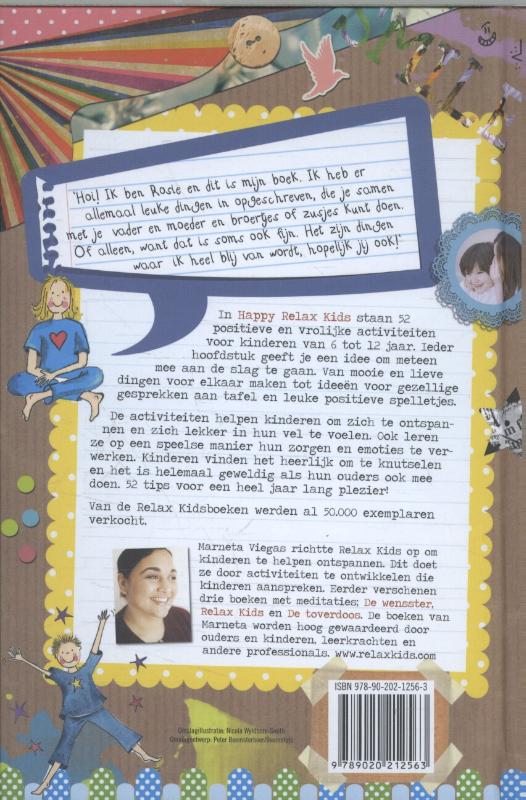 SMILE
'Hoi! Ik ben Rosie en dit is mijn boek. Ik heb er
allemaal leuke dingen in opgeschreven, die je samen
met je vader en moeder en broertjes of zusjes kunt doen.
Of alleen, want dat is soms ook fijn. Het zijn dingen
waar ik heel blij van wordt, hopelijk jij ook!'
In Happy Relax Kids staan 52
positieve en vrolijke activiteiten
voor kinderen van 6 tot 12 jaar. Ieder
hoofdstuk geeft je een idee om meteen
mee aan de slag te gaan. Van mooie en lieve
dingen voor elkaar maken tot ideeën voor gezellige
gesprekken aan tafel en leuke positieve spelletjes.
De activiteiten helpen kinderen om zich te ontspan-
nen en zich lekker in hun vel te voelen. Ook leren
ze op een speelse manier hun zorgen en emoties te ver-
werken. Kinderen vinden het heerlijk om te knutselen
en het is helemaal geweldig als hun ouders ook mee
doen. 52 tips voor een heel jaar lang plezier!
Van de Relax Kidsboeken werden al 50.000 exemplaren
verkocht.
Marneta Viegas richtte Relax Kids op om
kinderen te helpen ontspannen. Dit doet
ze door activiteiten te ontwikkelen die
kinderen aanspreken. Eerder verschenen
drie boeken met meditaties; De wensster,
Relax Kids en De toverdoos. De boeken van
Marneta worden hoog gewaardeerd door
ouders en kinderen, leerkrachten en
andere professionals. www.relaxkids.com
ISBN 978-90-202-1256-3
Omslagillustratie: Nicola Wyldbore-Smith
Omslagontwerp: Peter Beemsterboer/Beemsfats
9 789020 212563